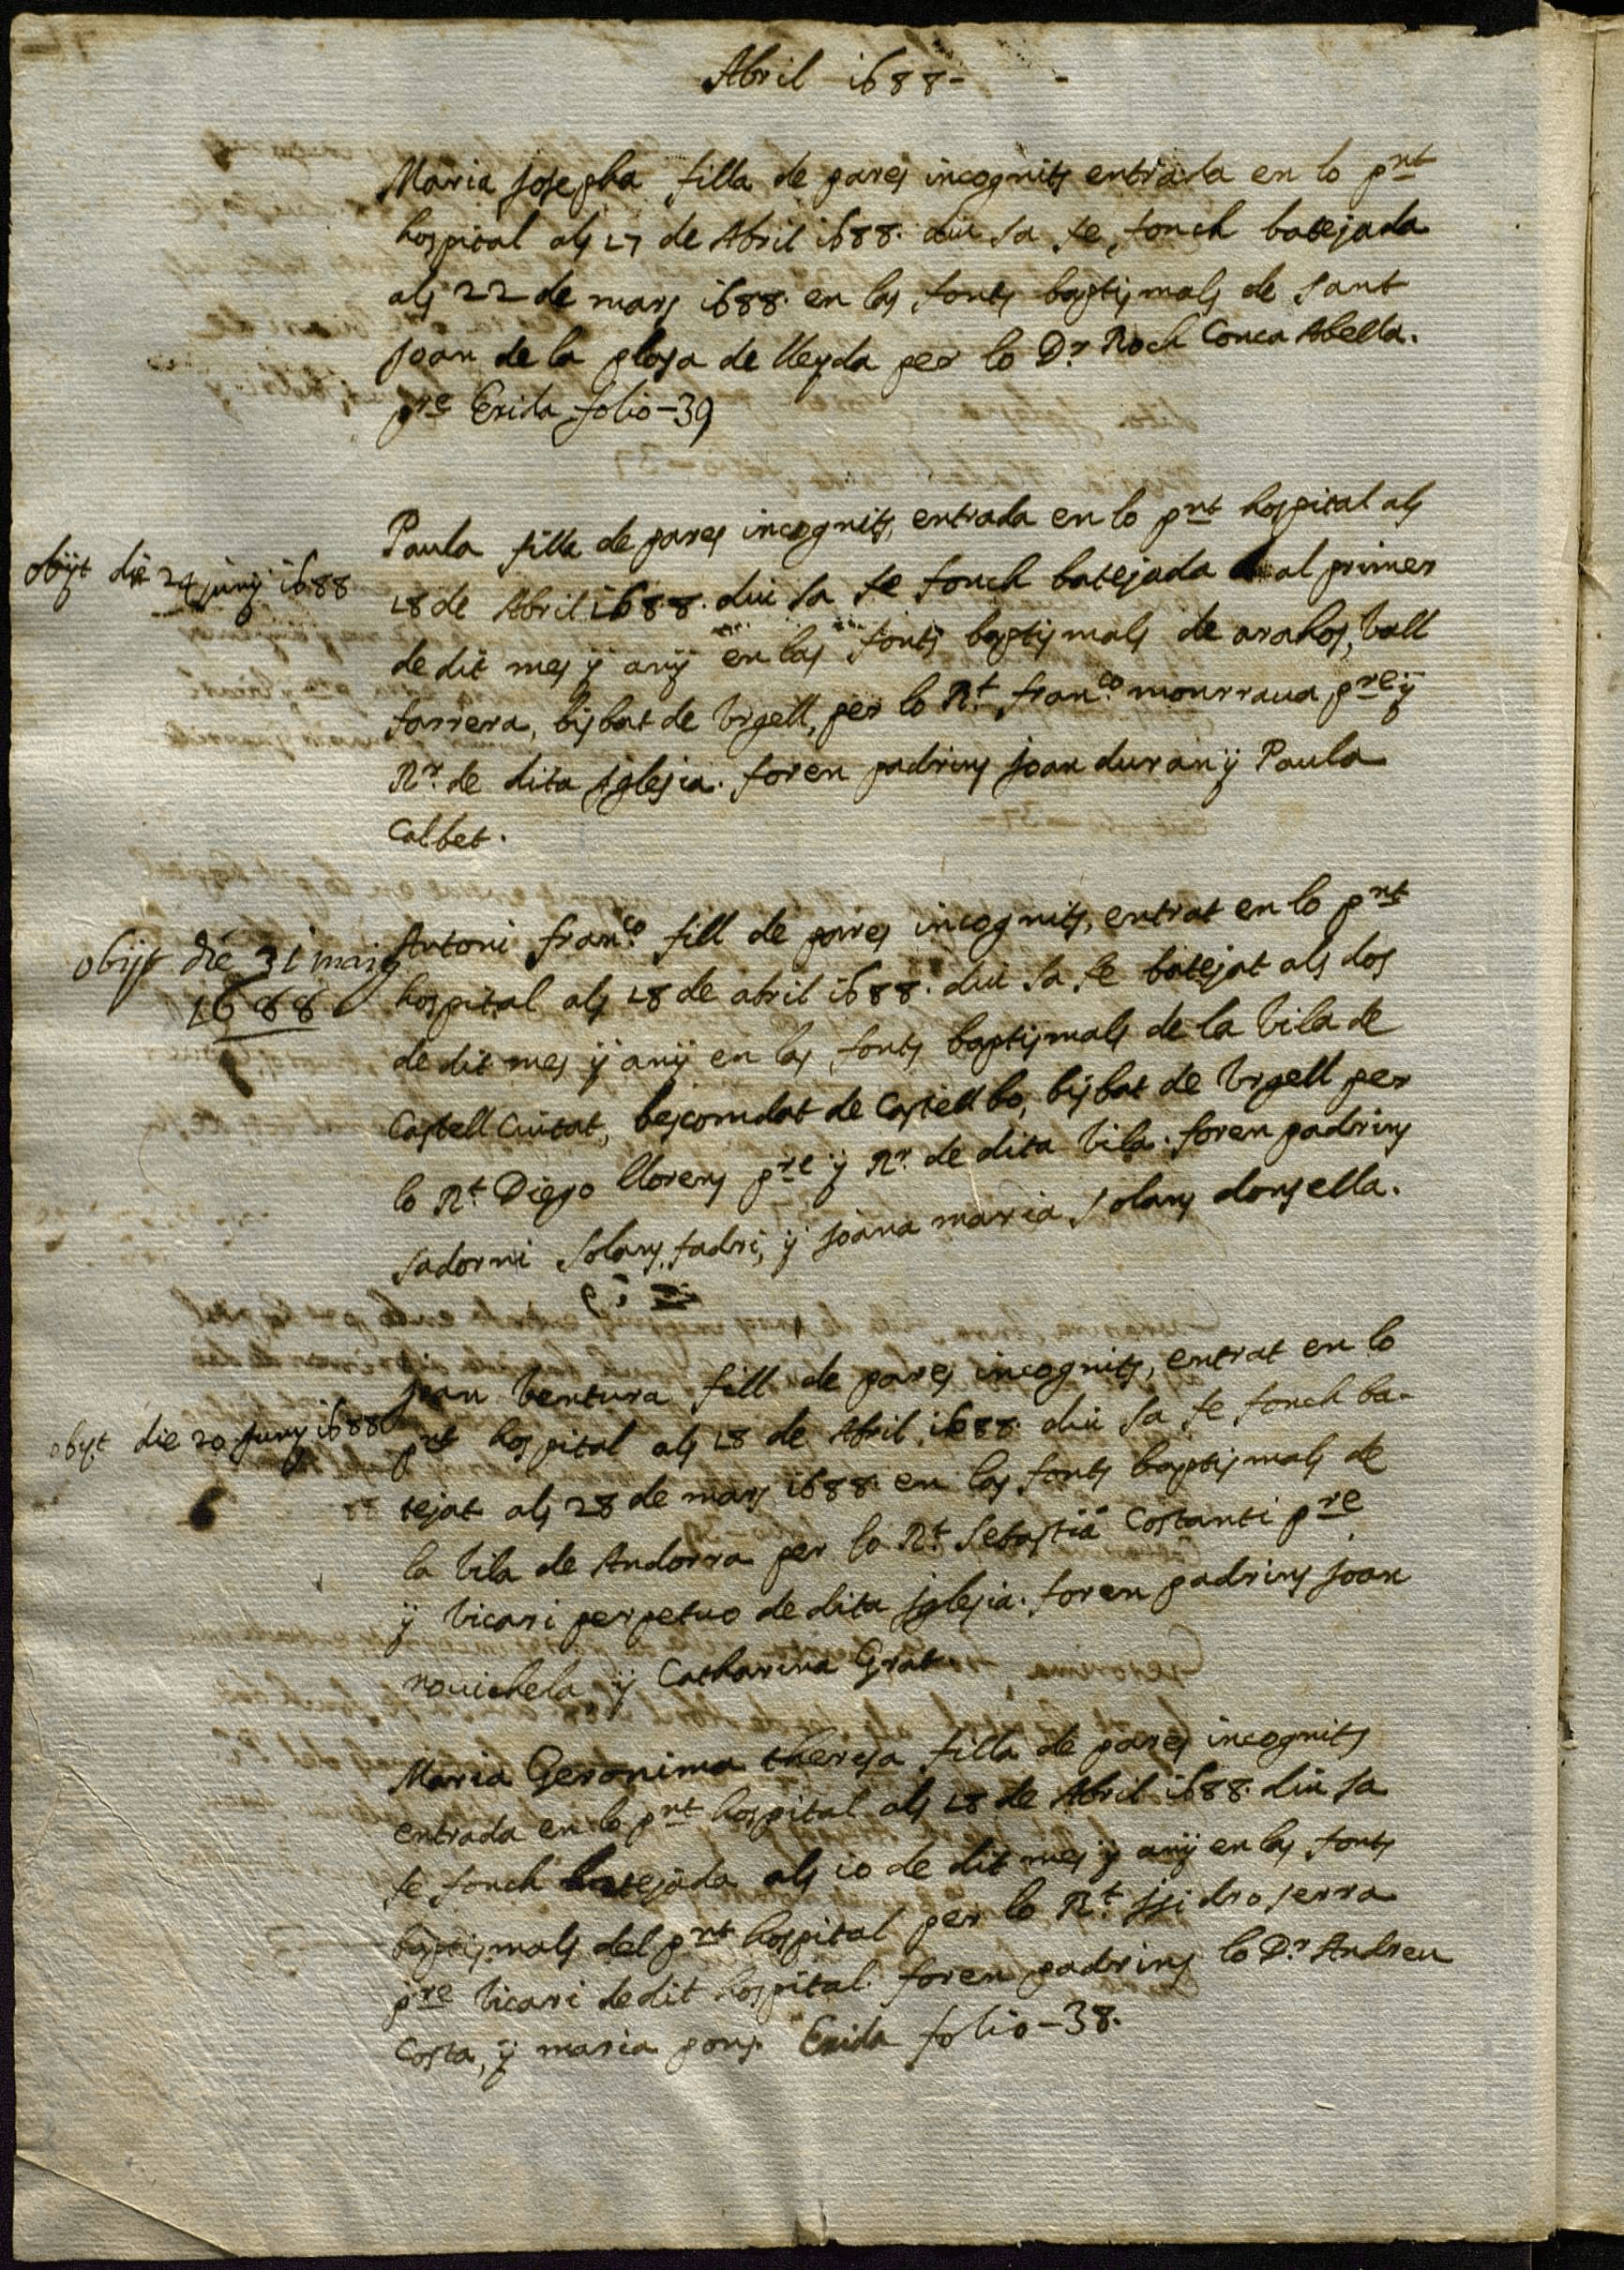 Abril 1688-
Maria Josepha filla de pares incognits entrada en lo pnt
hospital als 17 de Abril 1688. diu sa fe fonch batejada
als 22 de mars 1688. en las fonts baptismals de sant
Joan de la plasa de lleyda per lo Dr Roch Conca Abella.
pre Exida folio-39
obijt die 24 juny 1688
Paula filla de pares incognits, entrada en lo pnt hospital als
18 de Abril 1688. diu sa fe fonch batejada al primer
de dit mes ÿ anÿ en las fonts baptismals de arahos, vall
farrera, bisbat de Vrgell, per lo Rt. franco. mourraua, pre ÿ
Rr. de dita Iglesia. foren padrins Joan duran ÿ Paula
Calbet.
obijt die 31 maig
1688
Antoni franco. fill de pares incognits, entrat en lo pnt
hospital als 18 de abril 1688. diu sa fe batejat als dos
de dit mes ÿ anÿ en las fonts baptismals de la Vila de
Castell Ciutat, bescomdat de Castellbo, bisbat de Vrgell per
lo Rt. Diego llorens pre ÿ Rr. de dita Vila. foren padrins
sadorni Solans, fadri, ÿ Joana maria Solans donsella.
obijt die 20 Juny 1688
Joan Ventura fill de pares incognits, entrat en lo
pnt hospital als 18 de Abril 1688. diu sa fe fonch ba-
tejat als 28 de mars 1688. en las fonts baptismals de
la Vila de Andorra per lo Rt. Sebastiá Costanti pre
ÿ Vicari perpetuo de dita Iglesia. foren padrins Joan
rouichela, ÿ Catharina Grat.
Maria Geronima theresa filla de pares incognits
entrada en lo pnt hospital als 18 de Abril 1688. diu sa
fe fonch batejada als 10 de dit mes ÿ anÿ en las fonts
baptismals del pnt hospital per lo Rt. Isidro serra
pre Vicari de dit hospital. foren padrins lo Dr. Andreu
Costa, ÿ maria pons. Exida folio-38.